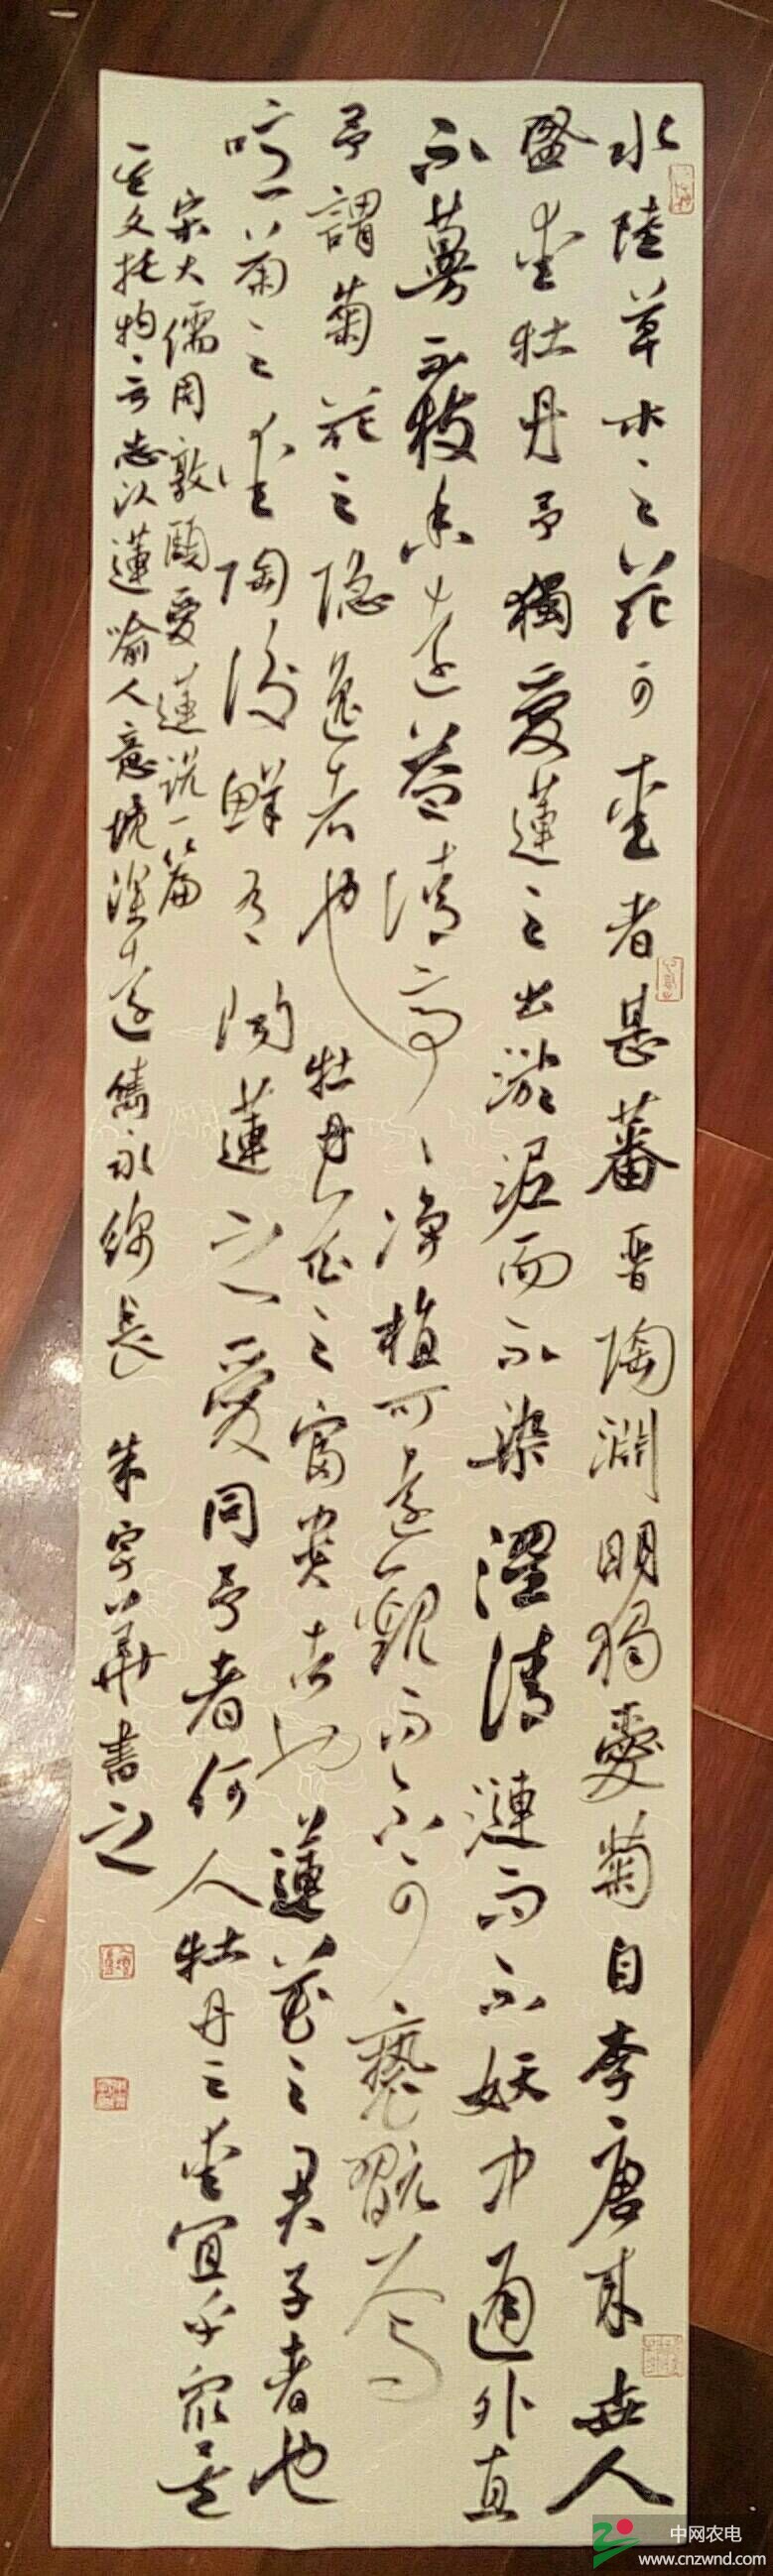 水陸草木之花可愛者甚蕃晋陶淵明独愛菊自李唐来世人
盛愛牡丹予獨愛蓮之出淤泥而不染濯清漣而不妖中通外直
不蔓不枝香遠益清亭亭淨植可遠觀而不可褻翫焉
予謂菊花之隐逸者也牡丹花之富貴者也蓮花之君子者也
噫菊之愛陶後鮮有聞蓮之愛同予者何人牡丹之愛宜乎眾矣
宋大儒周敦頤愛蓮説一篇
其文托物言志以蓮喻人意境深遠雋永綿長 朱宇華書之
中网农电
www.cnzwnd.com